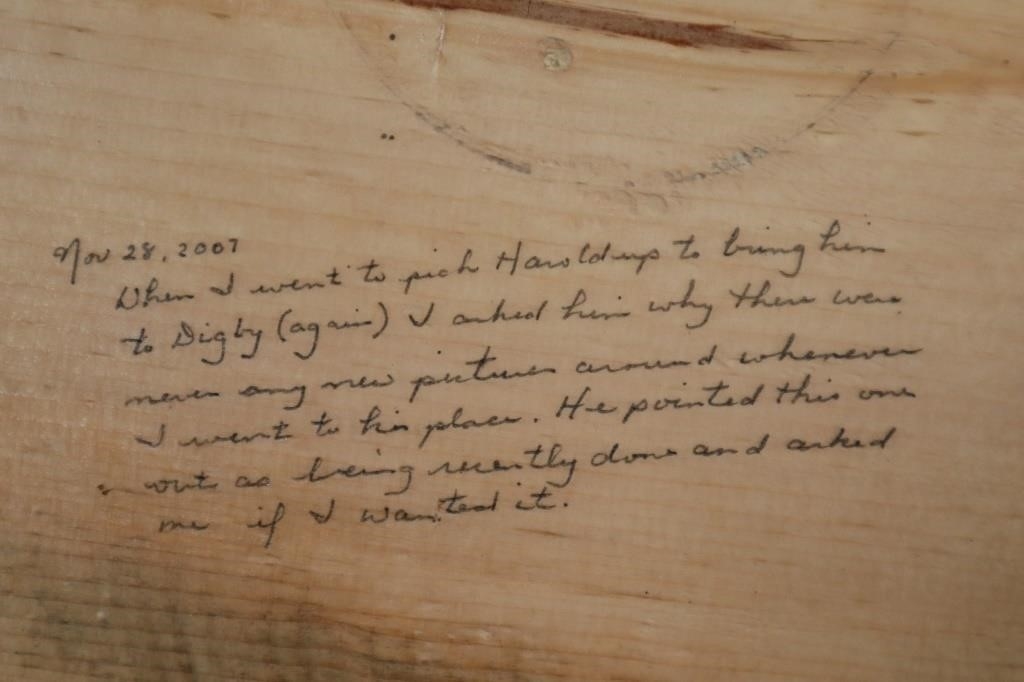 Nov 28, 2007
When I went to pick Harold up to bring him
to Digby (again) I asked him why there were
never any new pictures around whenever
I went to his place. He pointed this one
out as being recently done and asked
me if I wanted it.